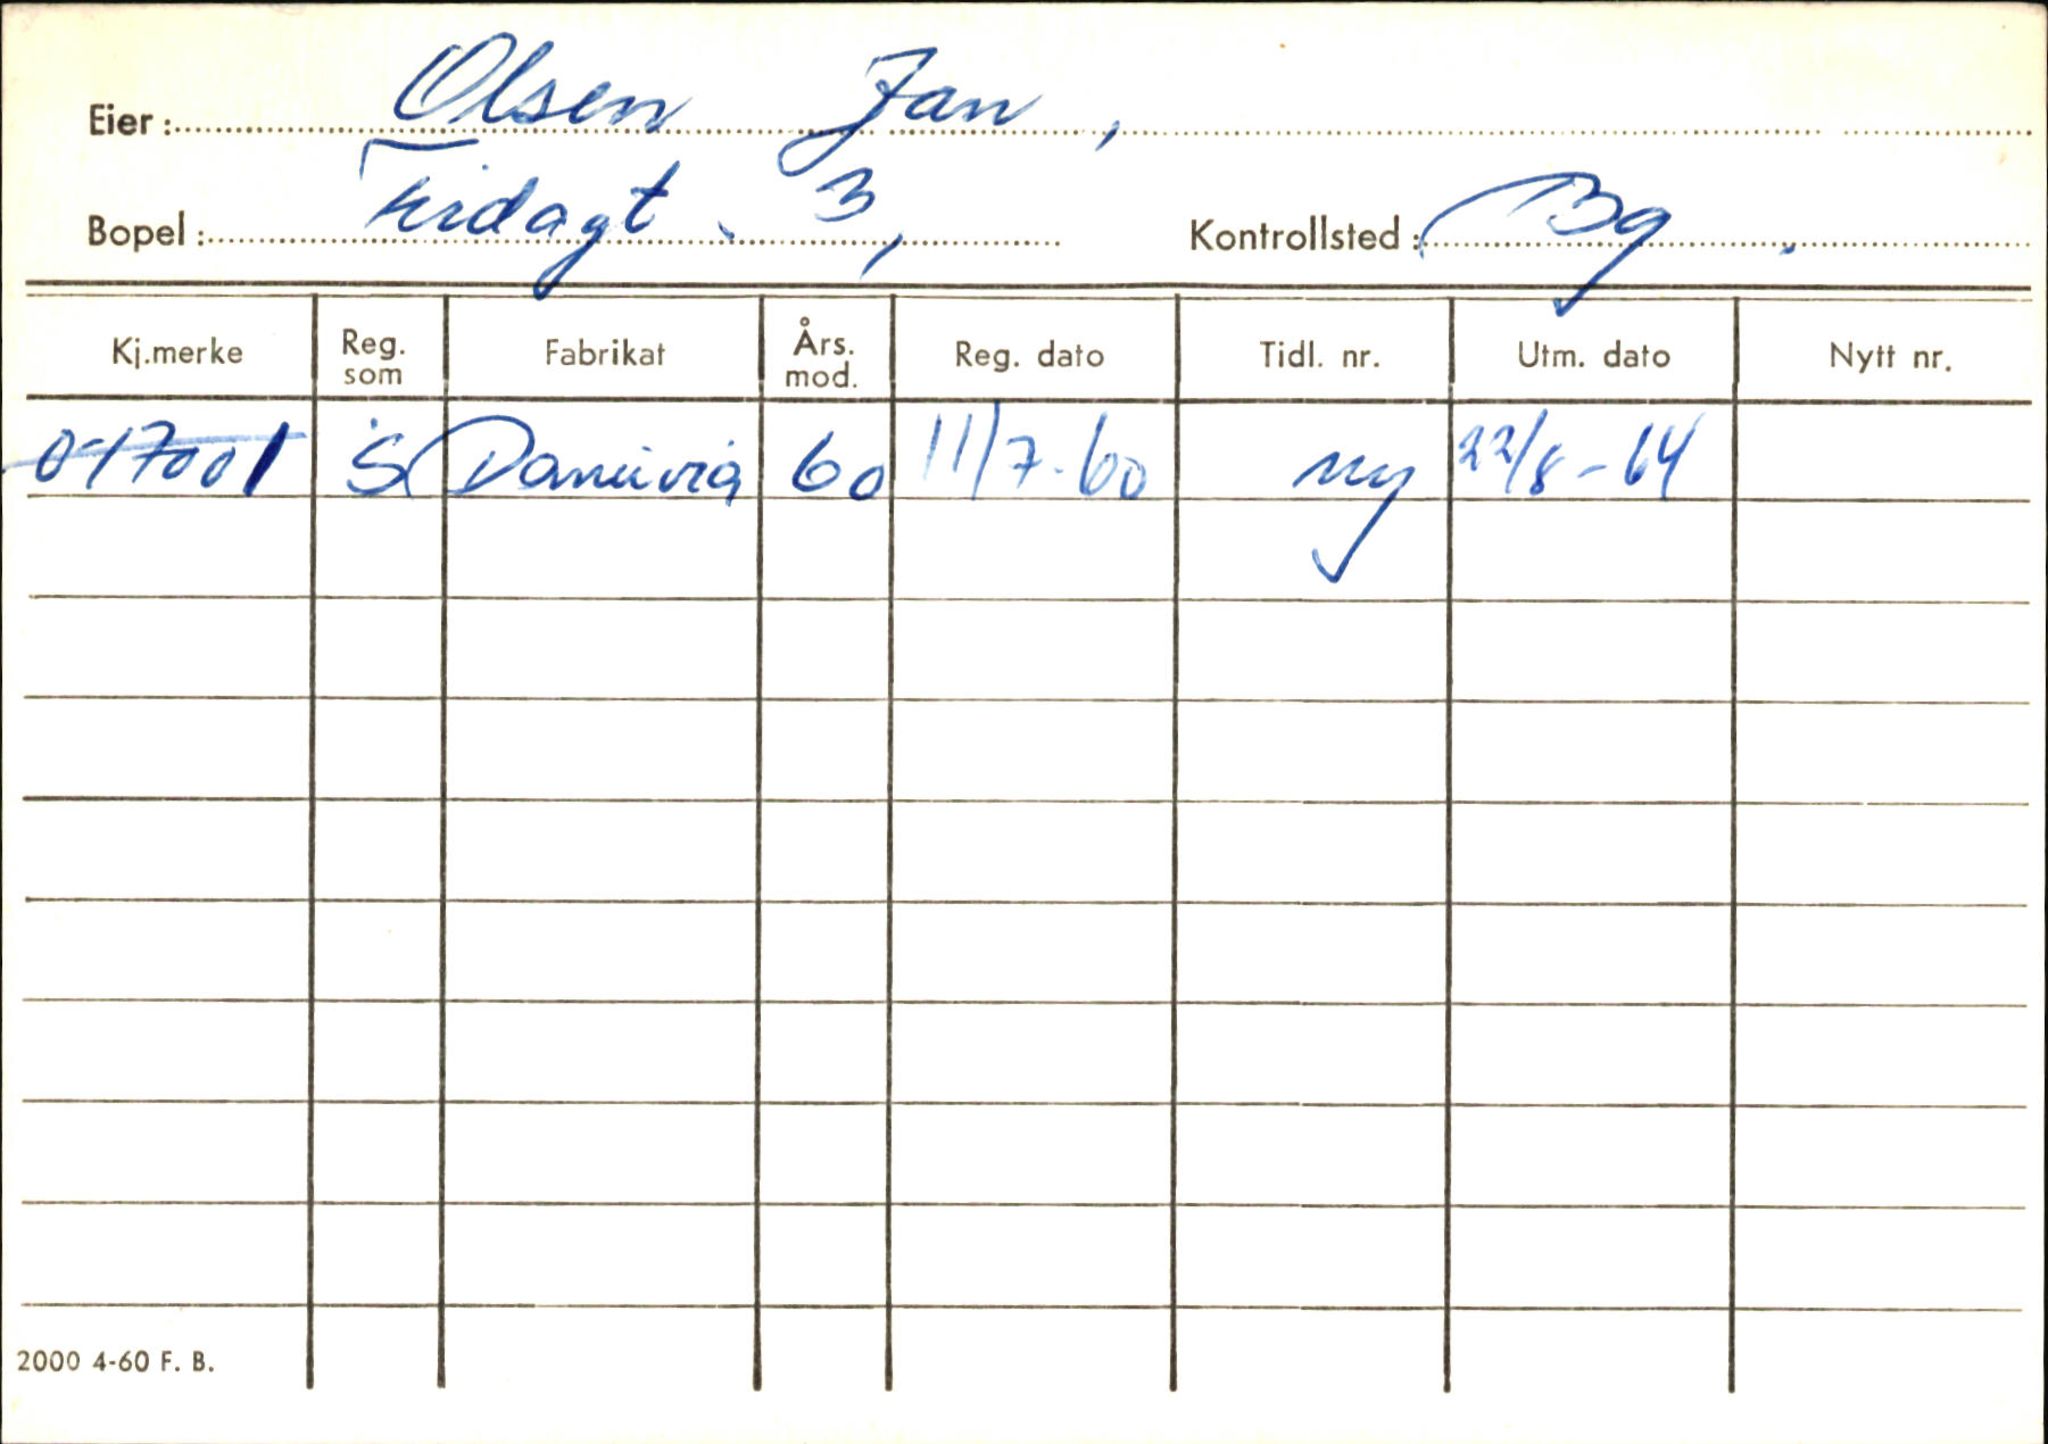 Eier: Olsen Jan,
Bopel: Firdagt. 3, Kontrollsted: Bg.
Kj.merke Reg. som Fabrikat Års. mod. Reg. dato Tidl. nr. Utm. dato Nytt nr.
O-17001 S Danuvia 60 11/7-60 ny 22/8-64
2000 4-60 F. B.